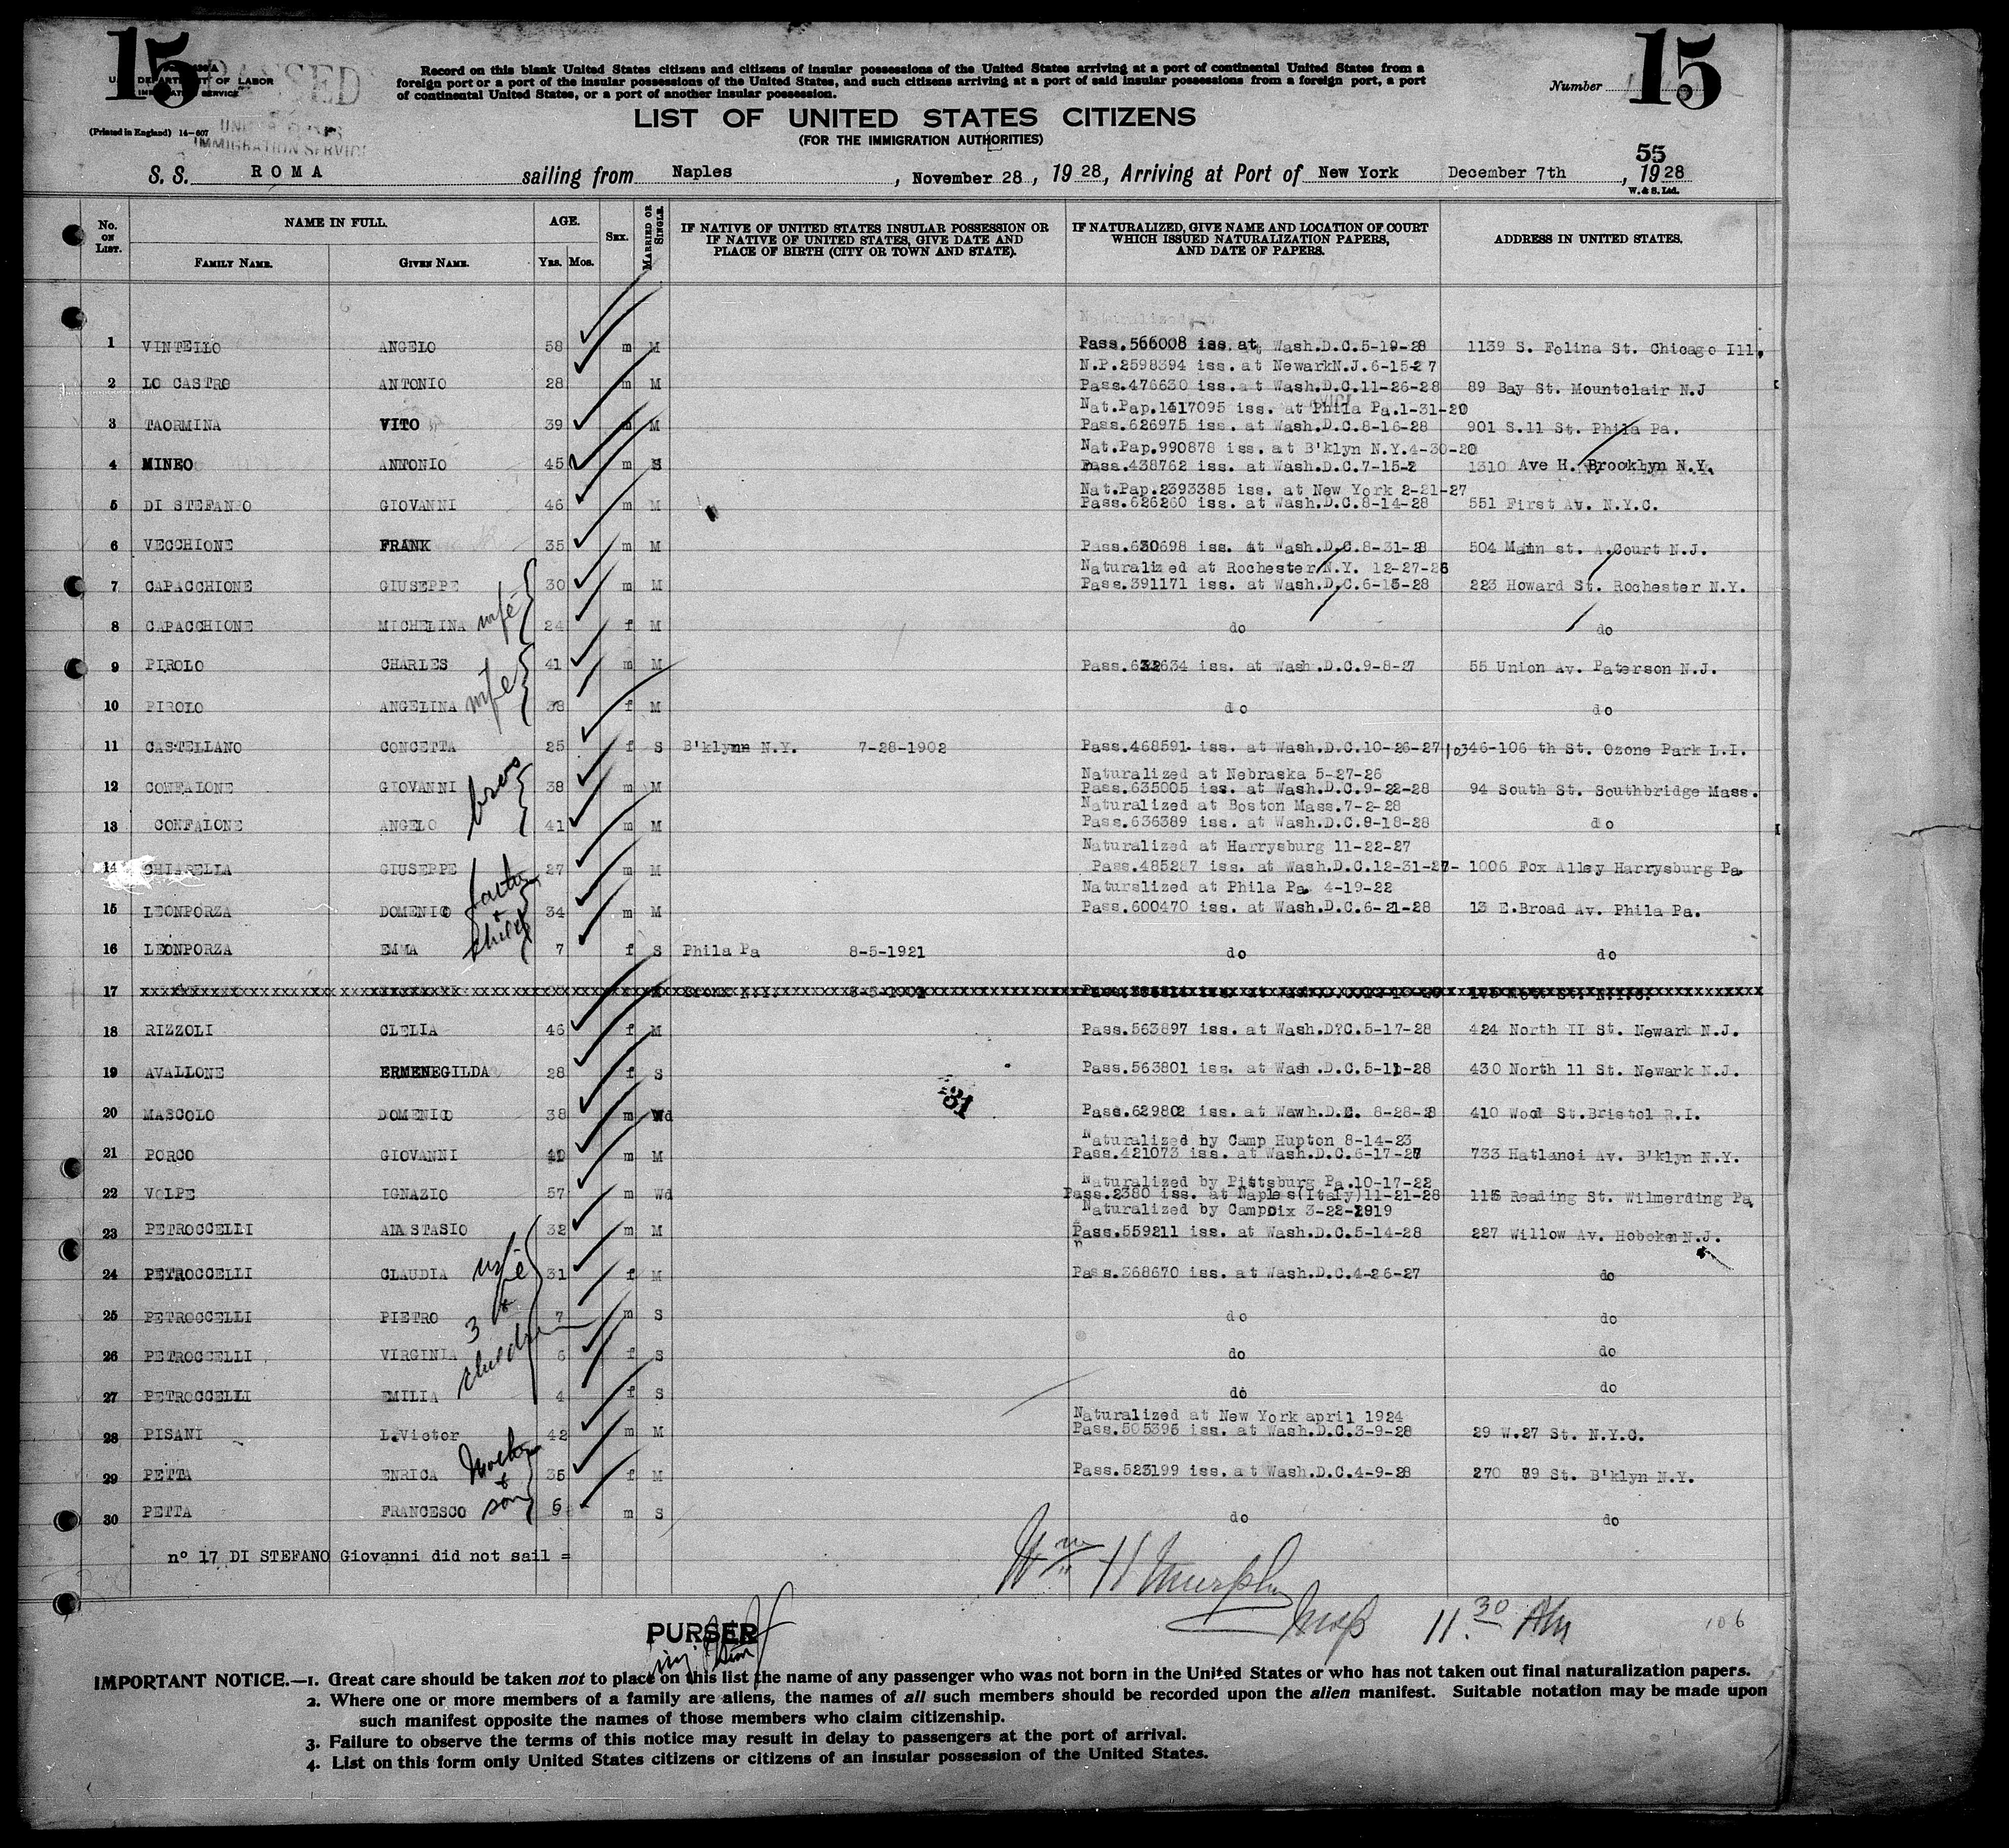 15
15
U. S. DEPARTMENT OF LABOR
IMMIGRATION SERVICE
(Printed in England) 14-607
IMMIGRATION SERVICE
Record on this blank United States citizens and citizens of insular possessions of the United States arriving at a port of continental United States from a
foreign port or a port of the insular possessions of the United States, and such citizens arriving at a port of said insular possessions from a foreign port, a port
of continental United States, or a port of another insular possession.
Number
LIST OF UNITED STATES CITIZENS
(FOR THE IMMIGRATION AUTHORITIES)
55
S. S. ROMA sailing from Naples, November 28, 1928, Arriving at Port of New York December 7th, 1928
W. & S. Ltd.
No. ON LIST. NAME IN FULL. AGE. SEX. MARRIED OR SINGLE. IF NATIVE OF UNITED STATES INSULAR POSSESSION OR IF NATIVE OF UNITED STATES, GIVE DATE AND PLACE OF BIRTH (CITY OR TOWN AND STATE). IF NATURALIZED, GIVE NAME AND LOCATION OF COURT WHICH ISSUED NATURALIZATION PAPERS, AND DATE OF PAPERS. ADDRESS IN UNITED STATES.
FAMILY NAME. GIVEN NAME. YRS. MOS.
1 VINTELLO ANGELO 58 m M Pass.566008 iss.at Wash.D.C.5-19-28 1139 S. Folina St. Chicago Ill.
N.P.2598394 iss. at NewarkN.J.6-15-27
2 LO CASTRO ANTONIO 28 m M Pass.476630 iss.at Wash.D.C.11-26-28 89 Bay St. Mountclair N.J
Nat.Pap.1417095 iss. at Phila Pa.1-31-20
3 TAORMINA VITO 39 m M Pass.626975 iss. at Wash.D.C.8-16-28 901 S.11 St. Phila Pa.
Nat.Pap.990878 iss. at B'klyn N.Y.4-30-20
4 MINEO ANTONIO 45 m S Pass.438762 iss. at Wash.D.C.7-15-2 1310 Ave H. Brooklyn N.Y.
Nat.Pap.2393385 iss. at New York 2-21-27
5 DI STEFANO GIOVANNI 46 m M Pass.626260 iss. at Wash.D.C.8-14-28 551 First Av. N.Y.C.
6 VECCHIONE FRANK 35 m M Pass.630698 iss. at Wash.D.C.8-31-28 504 Main st. A.Court N.J.
Naturalized at Rochester N.Y. 12-27-26
7 CAPACCHIONE GIUSEPPE 30 m M Pass.391171 iss. at Wash.D.C.6-15-28 223 Howard St. Rochester N.Y.
wife
8 CAPACCHIONE MICHELINA 24 f M do do
9 PIROLO CHARLES 41 m M Pass.632634 iss. at Wash.D.C.9-8-27 55 Union Av. Paterson N.J.
wife
10 PIROLO ANGELINA 38 f M do do
11 CASTELLANO CONCETTA 25 f S B'klynn N.Y. 7-28-1902 Pass.468591 iss. at Wash.D.C.10-26-27 10346-106 th St. Ozone Park L.I.
Naturalized at Nebraska 5-27-26
12 CONFALONE GIOVANNI 38 m M Pass.635005 iss. at Wash.D.C.9-22-28 94 South St. Southbridge Mass.
bros
Naturalized at Boston Mass.7-2-28
13 CONFALONE ANGELO 41 m M Pass.636389 iss. at Wash.D.C.8-18-28 do
Naturalized at Harrysburg 11-22-27
14 CHIARELLA GIUSEPPE 27 m M Pass.485287 iss. at Wash.D.C.12-31-27- 1006 Fox Alley Harrysburg Pa
Naturelized at Phila Pa. 4-19-22
15 LEONPORZA DOMENICO 34 m M Pass.600470 iss. at Wash.D.C.6-21-28 13 E.Broad Av. Phila Pa.
father + child
16 LEONPORZA EMMA 7 f S Phila Pa 8-5-1921 do do
17
18 RIZZOLI CLELIA 46 f M Pass.563897 iss. at Wash.D?C.5-17-28 424 North II St. Newark N.J.
19 AVALLONE ERMENEGILDA 28 f S Pass.563801 iss. at Wash.D.C.5-11-28 430 North 11 St. Newark N.J.
20 MASCOLO DOMENICO 38 m Wd Pass.629802 iss. at Wawh.D.C. 8-28-28 410 Wood St.Bristol R.I.
Naturalized by Camp Hupton 8-14-23
21 PORCO GIOVANNI m M Pass.421073 iss. at Wash.D.C.6-17-27 733 Hatlanci Av. B'klyn N.Y.
Naturalized by Pittsburg Pa.10-17-22
22 VOLPE IGNAZIO 57 m Wd Pass.2380 iss. at Naples(Italy)11-21-28 115 Reading St. Wilmerding Pa
Naturalized by Campoix 3-22-1919
23 PETROCCELLI ANASTASIO 32 m M Pass.559211 iss. at Wash.D.C.5-14-28 227 Willow Av. Hoboken N.J.
wife + 3 children
24 PETROCCELLI CLAUDIA 31 f M Pass.368670 iss. at Wash.D.C.4-26-27 do
25 PETROCCELLI PIETRO 7 m S do do
26 PETROCCELLI VIRGINIA 6 f S do do
27 PETROCCELLI EMILIA 4 f S do do
Naturalized at New York april 1924
28 PISANI L.Victor 42 m M Pass.505395 iss. at Wash.D.C.3-9-28 29 W.27 St. N.Y.C.
29 PETTA ENRICA 35 f M Pass.523199 iss. at Wash.D.C.4-9-28 270 89 St. B'klyn N.Y.
Mother + son
30 PETTA FRANCESCO 6 m S do do
n° 17 DI STEFANO Giovanni did not sail =
Wm H Murphy
11 30 AM
106
PURSER
IMPORTANT NOTICE.—1. Great care should be taken not to place on this list the name of any passenger who was not born in the United States or who has not taken out final naturalization papers.
2. Where one or more members of a family are aliens, the names of all such members should be recorded upon the alien manifest. Suitable notation may be made upon
such manifest opposite the names of those members who claim citizenship.
3. Failure to observe the terms of this notice may result in delay to passengers at the port of arrival.
4. List on this form only United States citizens or citizens of an insular possession of the United States.